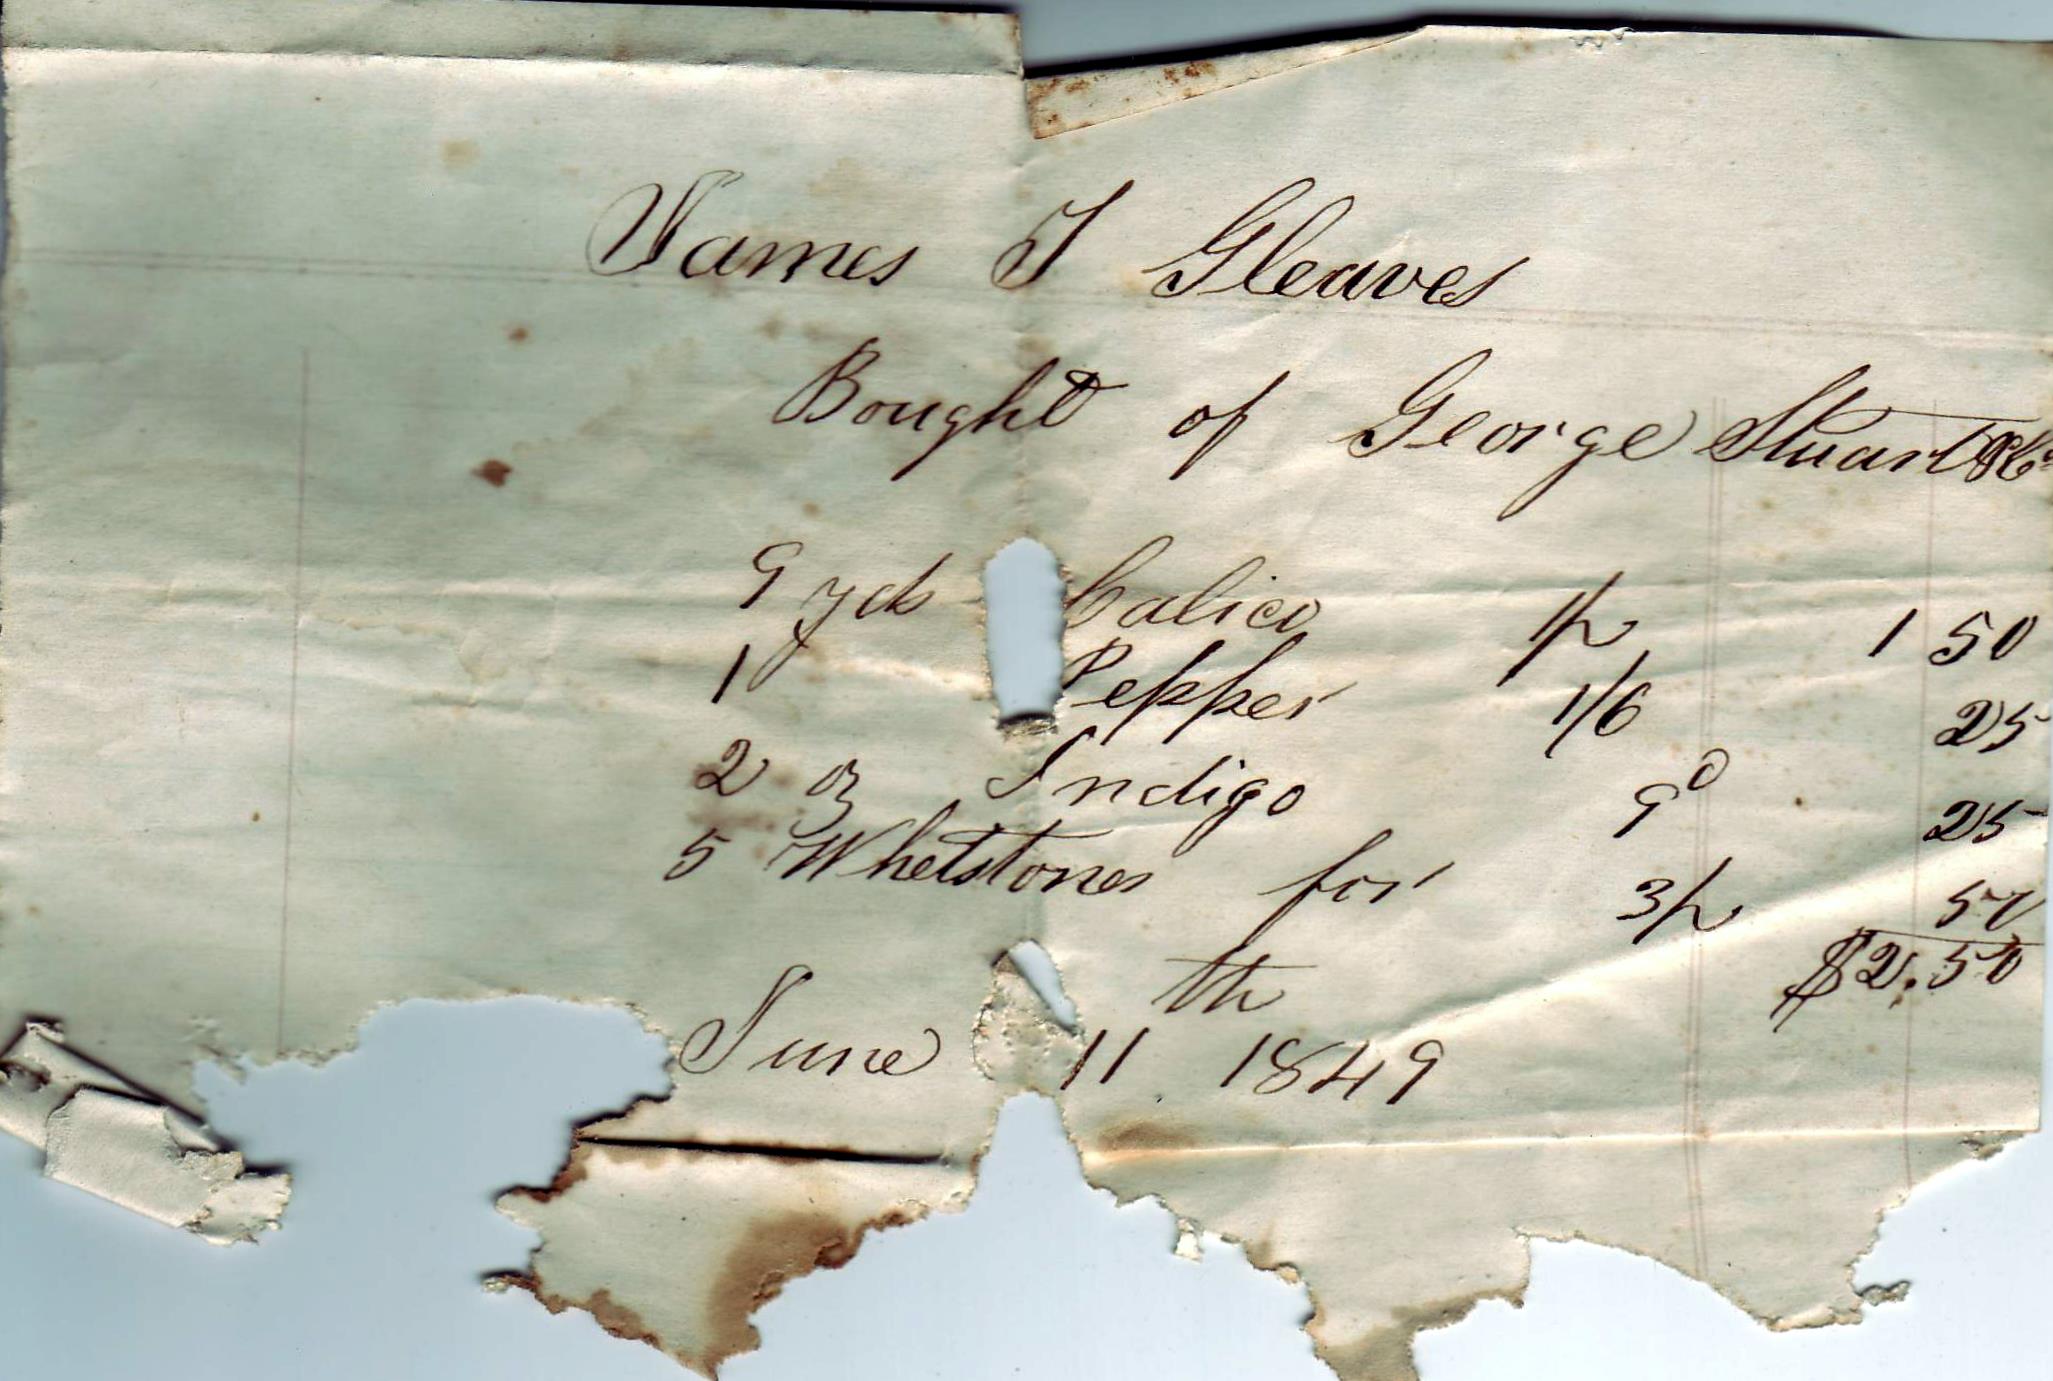 James T Gleaves
Bought of George Stuart & Co
9 yds Calico 1/ 1 50
1 Pepper 1/6 25
2 oz Indigo 9d 25
5 Whetstones for 3/ 50
$2.50
June 11th 1849